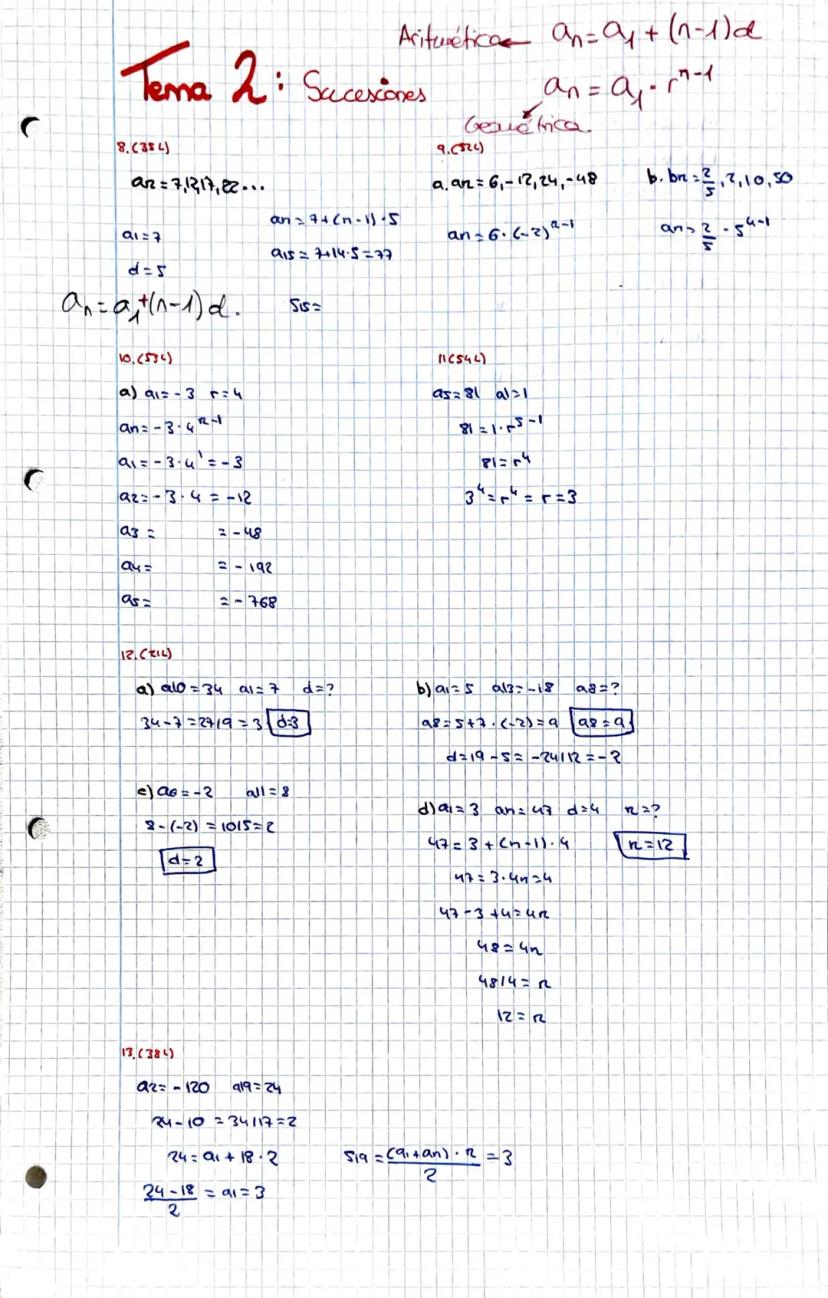 Aritmética ← an = a1 + (n-1)d
Tema 2: Sucesiones
an = a1 · r^n-1
Geométrica.
8.(35L)
an = 7,12,17,22...
a1 = 7
d = 5
an = 7+(n-1)·5
a15 = 7+14·5 = 77
an = a1+(n-1)d.
S15 =
9.(52L)
a. an = 6,-12,24,-48
an = 6·(-2)^n-1
b. bn = 2/5, 2, 10, 50
an = 2/5 · 5^n-1
10.(53L)
a) a1 = -3 r = 4
an = -3·4^n-1
a1 = -3·4^1 = -3
a2 = -3·4 = -12
a3 = = -48
a4 = = -192
a5 = = -768
11(54L)
a5 = 81 a1 = 1
81 = 1·r^5-1
81 = r^4
3^4 = r^4 = r = 3
12.(21L)
a) a10 = 34 a1 = 7 d = ?
34-7 = 27/9 = 3 d=3
b) a1 = 5 a13 = -18 a8 = ?
a8 = 5+7·(-2) = 9 a8 = 9
d = 19-5 = -24/12 = -2
c) a6 = -2 a11 = 8
8-(-2) = 10/5 = 2
d = 2
d) a1 = 3 an = 47 d = 4 n = ?
47 = 3+(n-1)·4 n = 12
47 = 3·4n=4
47-3+4 = 4n
48 = 4n
48/4 = n
12 = n
13.(38L)
a2 = -120 a19 = 24
24-10 = 34/17 = 2
24 = a1 + 18·2
24-18/2 = a1 = 3
S19 = (a1+an)·n/2 = 3